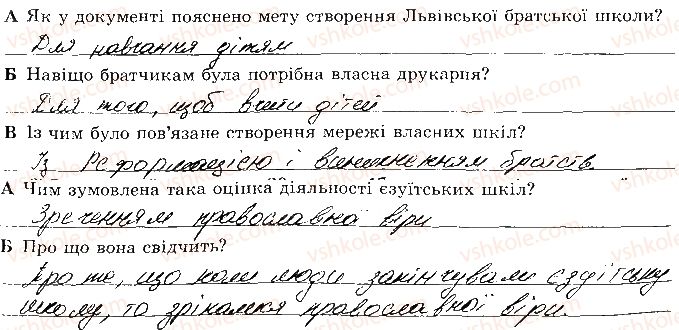 А Як у документі пояснено мету створення Львівської братської школи?
Для навчання дітям
Б Навіщо братчикам була потрібна власна друкарня?
Для того, щоб вчити дітей
В Із чим було пов'язане створення мережі власних шкіл?
Із Реформацією і виникненням братств
А Чим зумовлена така оцінка діяльності єзуїтських шкіл?
Зреченням православної віри
Б Про що вона свідчить?
Про те, що коли люди закінчували єзуїтську
школу, то зрікалися православної віри.